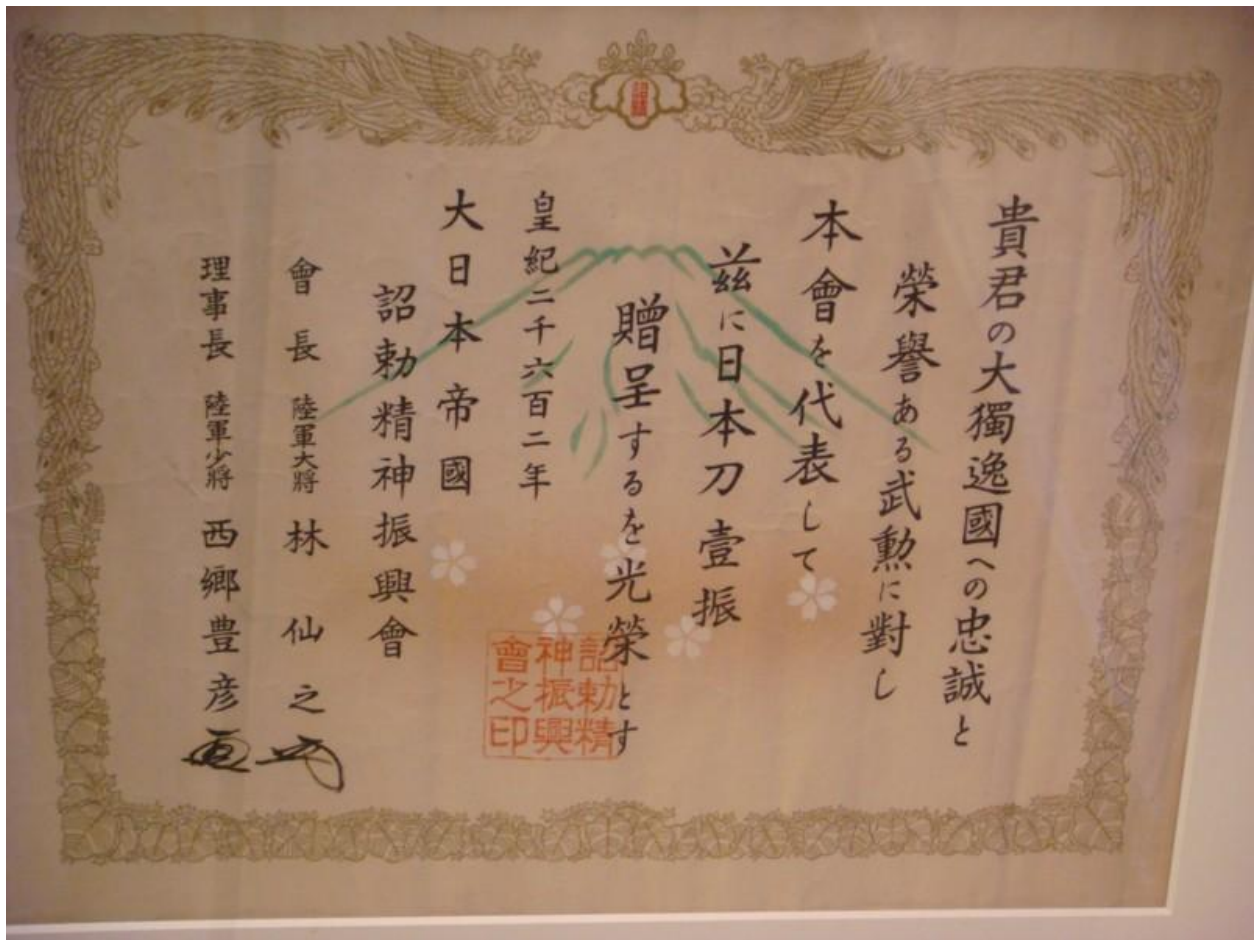 貴君の大獨逸國への忠誠と
榮譽ある武勲に對し
本會を代表して
茲に日本刀壹振
贈呈するを光榮とす
皇紀二千六百二年
大日本帝國
詔勅精神振興會
會長 陸軍大將 林仙之
理事長 陸軍少將 西郷豊彦
詔勅精
神振興
會之印